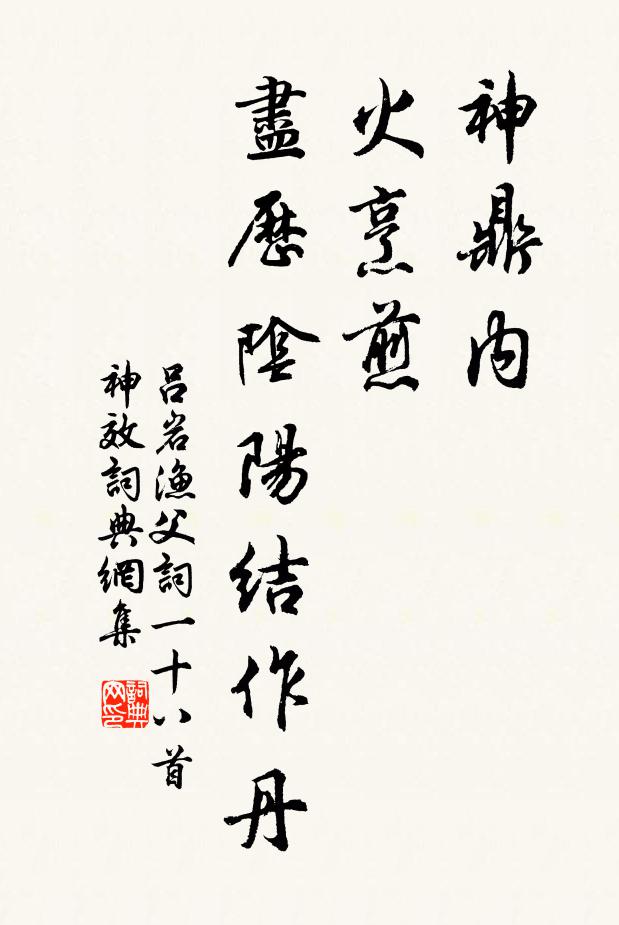 神鼎內
火烹煎
盡歷陰陽結作丹
呂岩漁父詞一十八首
神效詞典網集
詞典网印